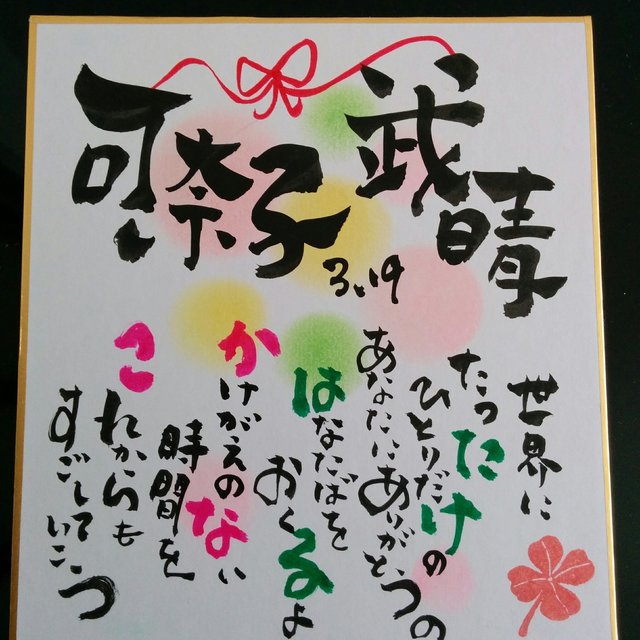 武晴
可奈子
3.19
世界に
たった
ひとりだけの
あなたにありがとうの
はなたばを
おくるよ
かけがえのない
時間を
これからも
すごしていこう